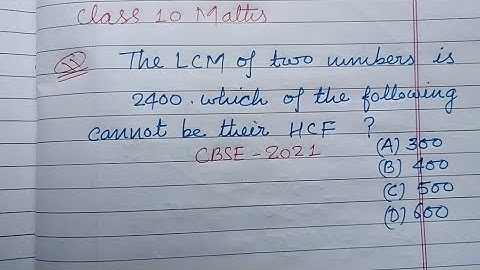 Class 10 Maths
Q The LCM of two numbers is
2400. which of the following
cannot be their HCF ?
CBSE - 2021
(A) 300
(B) 400
(C) 500
(D) 600